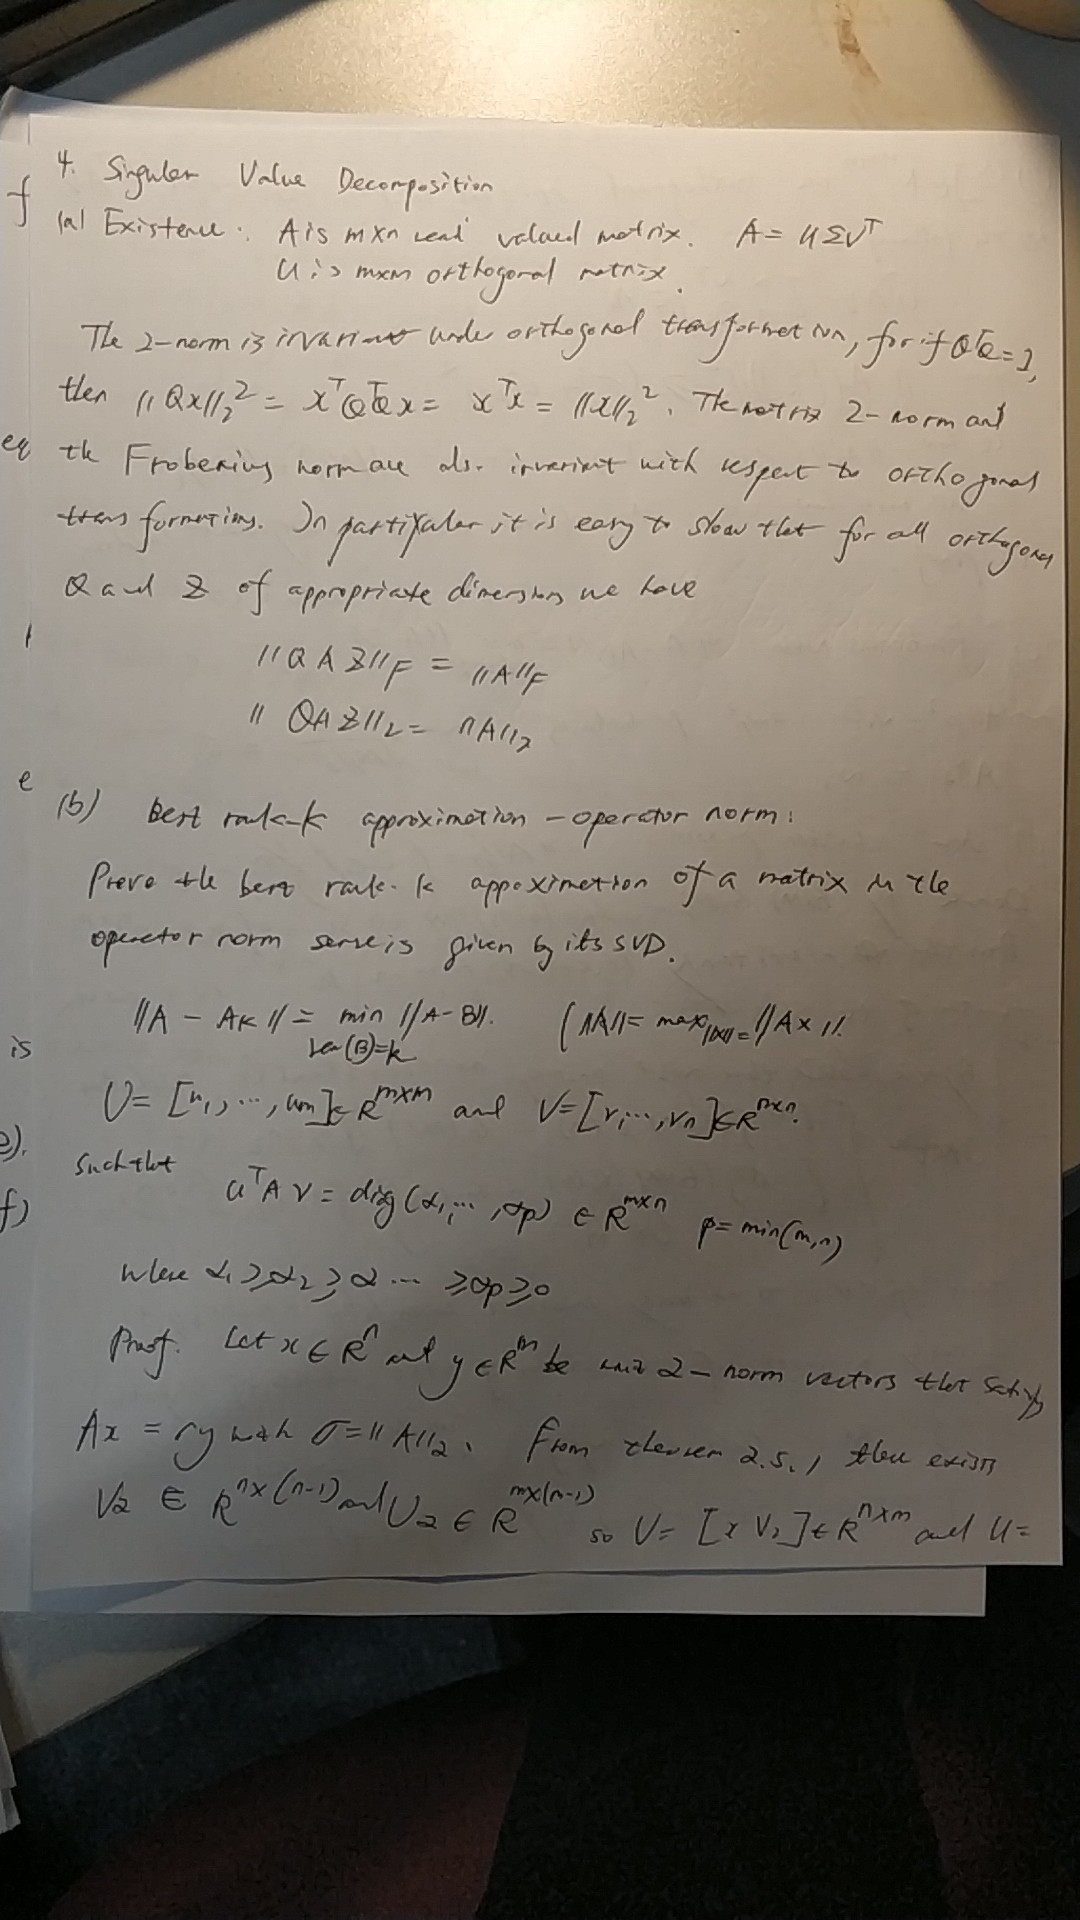 4. Singular Value Decomposition
f
(a) Existence: A is m×n real valued matrix. A = UΣV^T
U is m×m orthogonal matrix.
The 2-norm is invariant under orthogonal transformation, for if Q^TQ = I,
then ||Qx||_2^2 = x^TQ^TQx = x^Tx = ||x||_2^2. The matrix 2-norm and
eq
the Frobenius norm are also invariant with respect to orthogonal
transformations. In particular it is easy to show that for all orthogonal
Q and Z of appropriate dimensions we have
||QAZ||_F = ||A||_F
||QAZ||_2 = ||A||_2
e
(b) Best rank-k approximation - operator norm:
Prove the best rank-k appoximation of a matrix in the
operator norm sense is given by its SVD.
||A - A_K|| = min ||A-B||. (||A|| = max_{||x||=} ||Ax||.
is
ran(B)=k
U = [u_1, ..., u_m] ∈ R^{m×m} and V = [v_1, ..., v_n] ∈ R^{n×n}.
e).
Such that
U^TAV = diag(α_1, ..., αp) ∈ R^{m×n} p = min(m,n)
f)
where α_1 ≥ α_2 ≥ α ... ≥ αp ≥ 0
Proof. Let x ∈ R^n and y ∈ R^m be unit 2-norm vectors that satisfy
Ax = σy with σ = ||A||_2. From theorem 2.5., there exists
V_2 ∈ R^{n×(n-1)} and U_2 ∈ R^{m×(m-1)} so V = [x V_2] ∈ R^{n×m} and U =